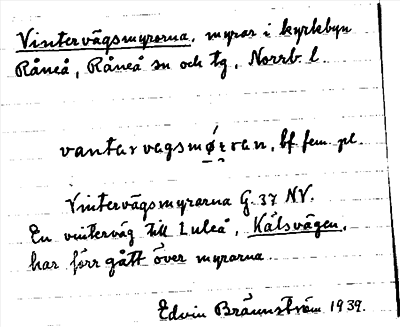 Vintervägsmyrorna, myror i kyrkbyn
Råneå, Råneå sn och tg, Norrb. l.
vantarvagsmø̱ṛan, bf. fem. pl.
Vintervägsmyrarna G. 37 NV.
En vinterväg till Luleå, Kälsvägen,
har förr gått över myrarna.
Edvin Brännström 1939.